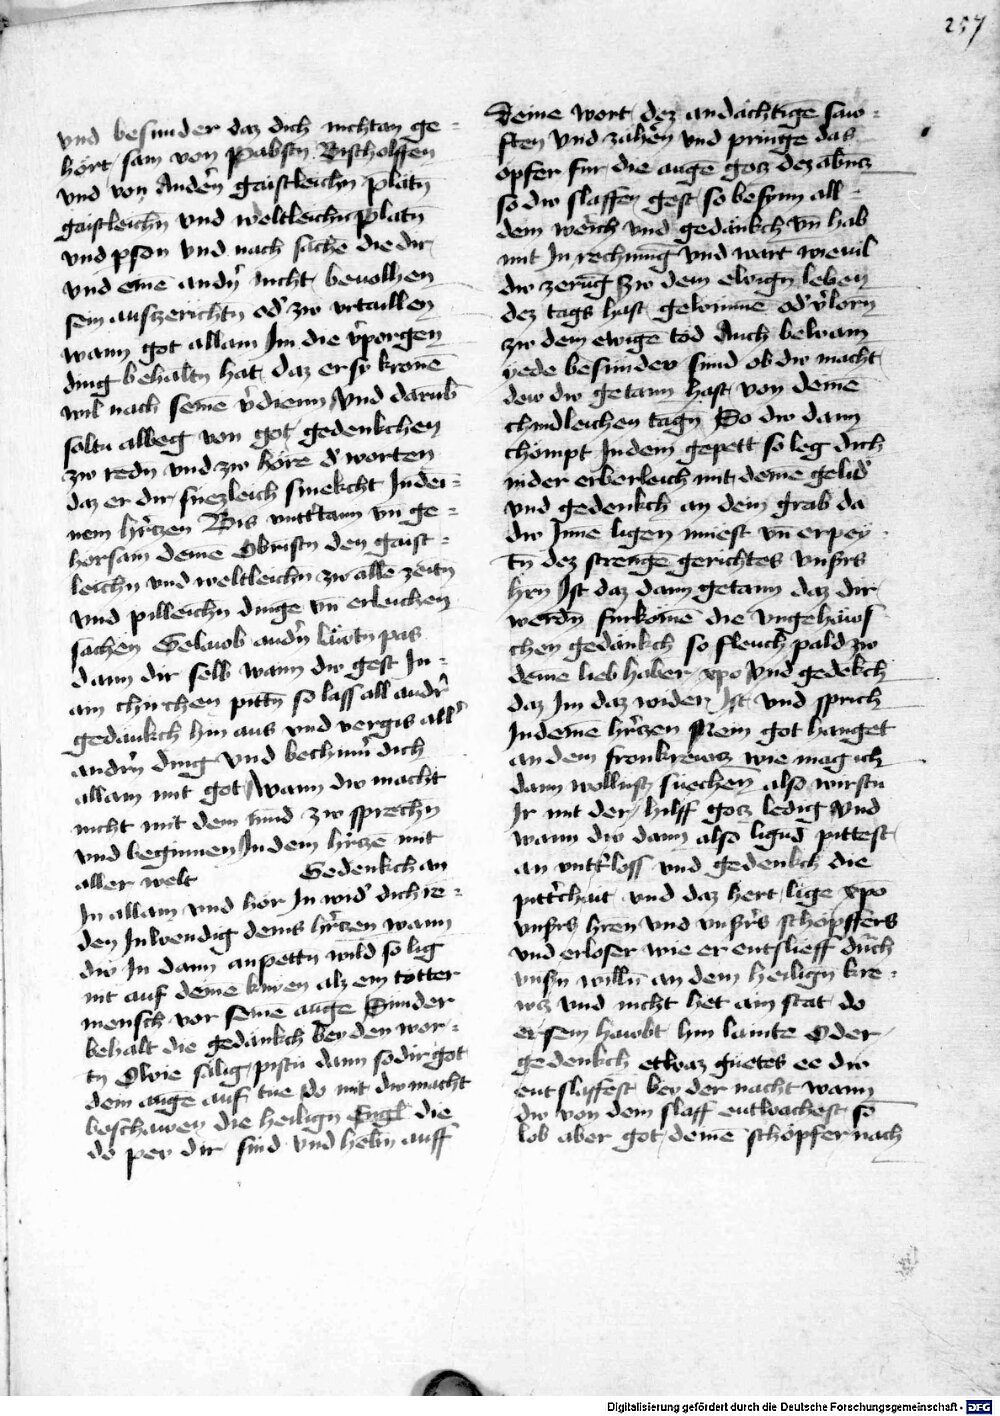 257
vnd besunder daz dich nichtan ge=
hört sam von Pabstn Bischolffen
vnd von Andern gaistleichn platn
gaistleichn vnd weltleichn platn
vnd pson vnd nach sachē die dir
vnd einē andn̄ nicht beuolhen
sein auszerichtn od' zw vrtaillen
wann got allain Im die v'porgen
ding behaltn hat daz er sy kronē
wil nach seinē v'dienn vnd darub̄
soltu albeg von got gedenkchen
zw redn vnd zw hörē d' worten
daz er dir suezleich smekcht In dei=
nem hr̄czen Bis vnttan vn̄ ge=
horsam deinē Obristn den gaist=
leichn vnd weltleichn zw allē zeitn
vnd pilleichn dinge vn̄ erleichen
sachen Gelawb andn̄ läwtn pas
dann dir selb wann dw gest In
ain chirchen pittn so lass all andr̄
gedänkch hin aus vnd vergis all'
andrn̄ ding vnd bechum̄ dich
allain mit got wann dw macht
nicht mit dem mūd zw sprechn
vnd beginnen In dem hr̄czē mit
aller welt Gedenkch an
In allain vnd hör In wid' dich re=
den Inwendig deins hr̄czen wann
dw In dann anpettn wild so lig
nit auf deinē knien alz ein totter
mensch vor seinē augē Sunder
behalt die gedänkch bey den wor=
tn O wie sälig pistu dann so dir got
dein auge auf tue do mit dw macht
beschawen die heilign Engl die
do pey dir sind vnd hebn̄ auff
Deine wort dez andächtigē saw=
ften vnd zähēn vnd pringē das
opfer fur die augē gotz dez abncz
so dw slaffen gest so besynn all=
dein werch vnd gedänkch vn̄ hab
mit In rechnūg vnd wart wieuil
dw zerūg zw dem ewign leben
dez tags hast gewunnē od' v'lorn
zw dem ewigē tod Auch bewain
yede besunder sund ob dw macht
dew dw getann hast von deinē
chindleichen tagn So dw dann
chömpt In dein gepett so leg dich
nider erberleich mit deinē gelid'
vnd gedenkch an dein grab da
dw Innē ligen muest vn̄ erpey=
tn dez strengē gerichtes vnsrs
hrn̄ Ist daz dann getann daz dir
werdn furkömē die vngehäws=
chen gedänkch so fleuch pald zw
deinē liebhaber xpo vnd gedēkch
daz Im daz wider Ist vnd sprich
In deinē hr̄czen Mein got hanget
an dem fronkrewtz wie mag ich
dann wollust suechen also wirstu
Ir mit der hilff gotz ledig vnd
wann dw dann also ligūd pittest
an vntt'loss vnd gedenkch die
pittr̄chait vnd daz hert lige xpo
vnsrs hren vnd vnsrs schöpffers
vnd erloser wie er entslieff durch
vnsn̄ willn̄ an dem heilign kre=
wcz vnd nicht het ain stat do
er sein hawbt hin lainte Oder
gedenkch etwaz guetes ee dw
entslaffest bey der nacht wann
dw von dem slaff entwachest so
lob aber got deinē schöpfer nach
Digitalisierung gefördert durch die Deutsche Forschungsgemeinschaft - DFG